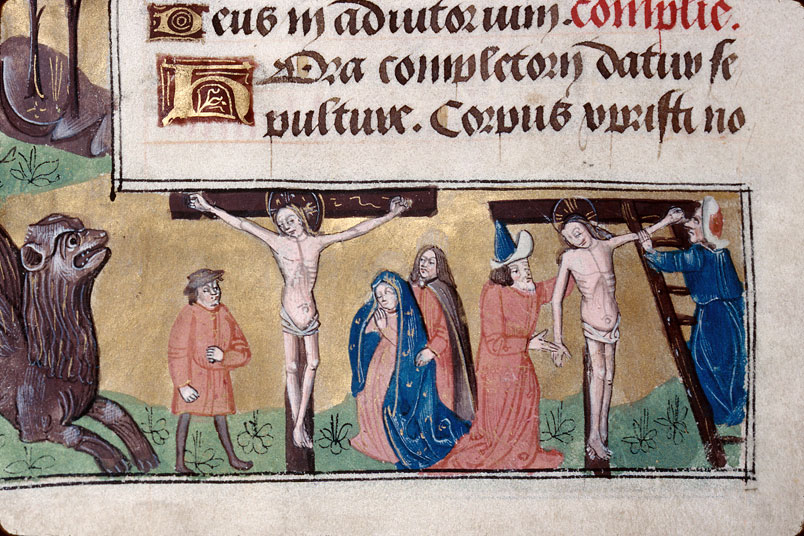 Deus in adiutorium. complie.
Hora completorij datur se
pulture. Corpus xpristi no